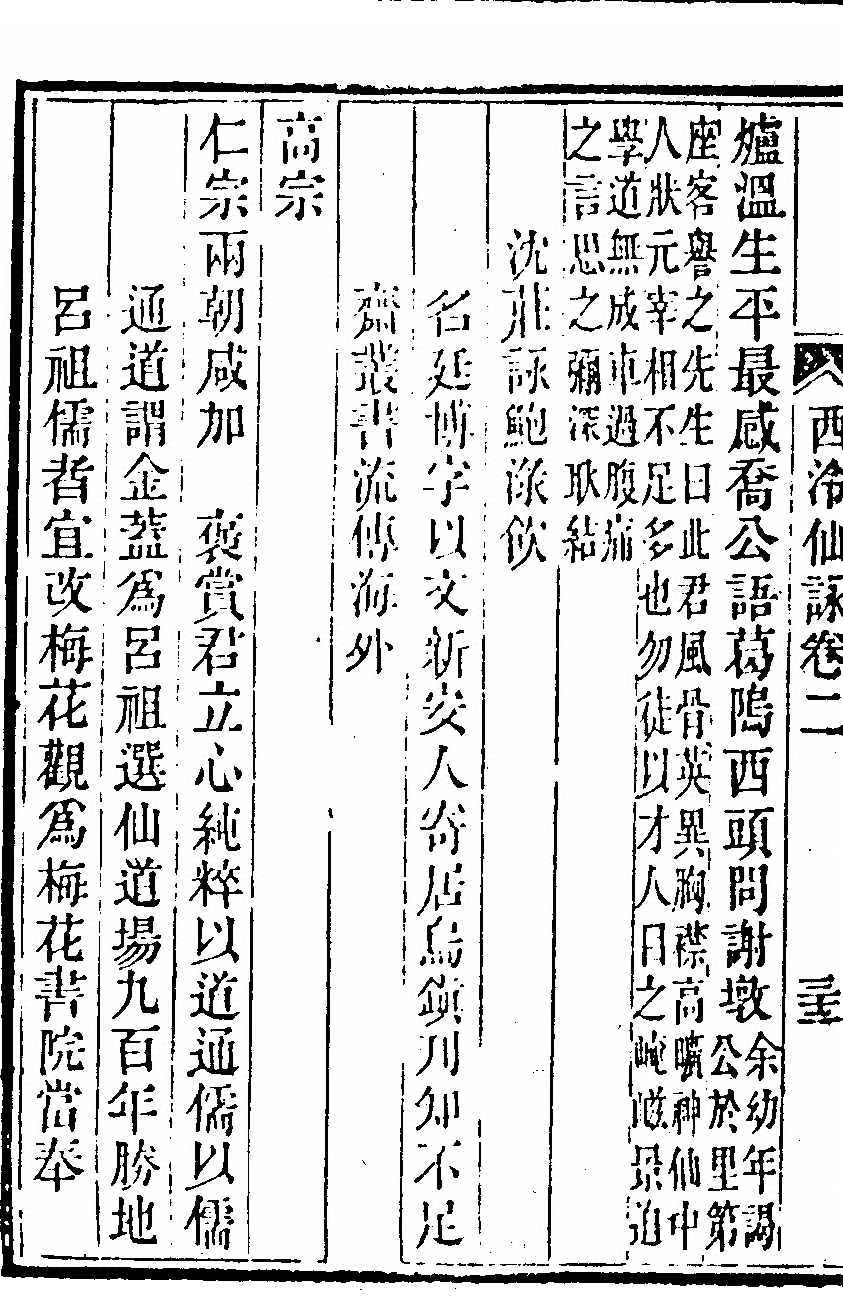 西泠仙詠卷二
爐溫生平最感喬公語葛塢西頭問謝墩
余幼年謁
公於里第
座客譽之先生曰此君風骨英異胸襟高曠神仙中
人狀元宰相不足多也勿徒以才人目之崦嵫景迫
學道無成車過腹痛
之言思之彌深耿結
沈莊詠鮑淥飲
名廷博字以文新安人寄居烏鎮刋知不足
齋叢書流傳海外
高宗
仁宗兩朝咸加　褒賞君立心純粹以道通儒以儒
通道謂金蓋爲呂祖選仙道場九百年勝地
呂祖儒者宜改梅花觀爲梅花書院當奉